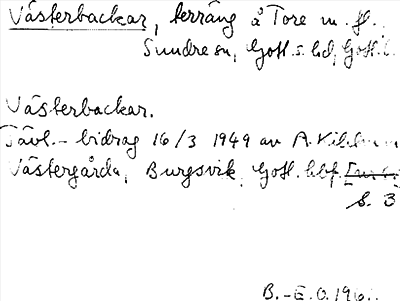 Västerbackar, terräng å Tore m. fl.,
Sundre sn, Gotl. s. hd, Gotl. l.
Västerbackar.
Tävl.-bidrag 16/3 1949 av A.
Västergårda, Burgsvik, Gotl. bbf.
s. 3
B.-E. O. 196